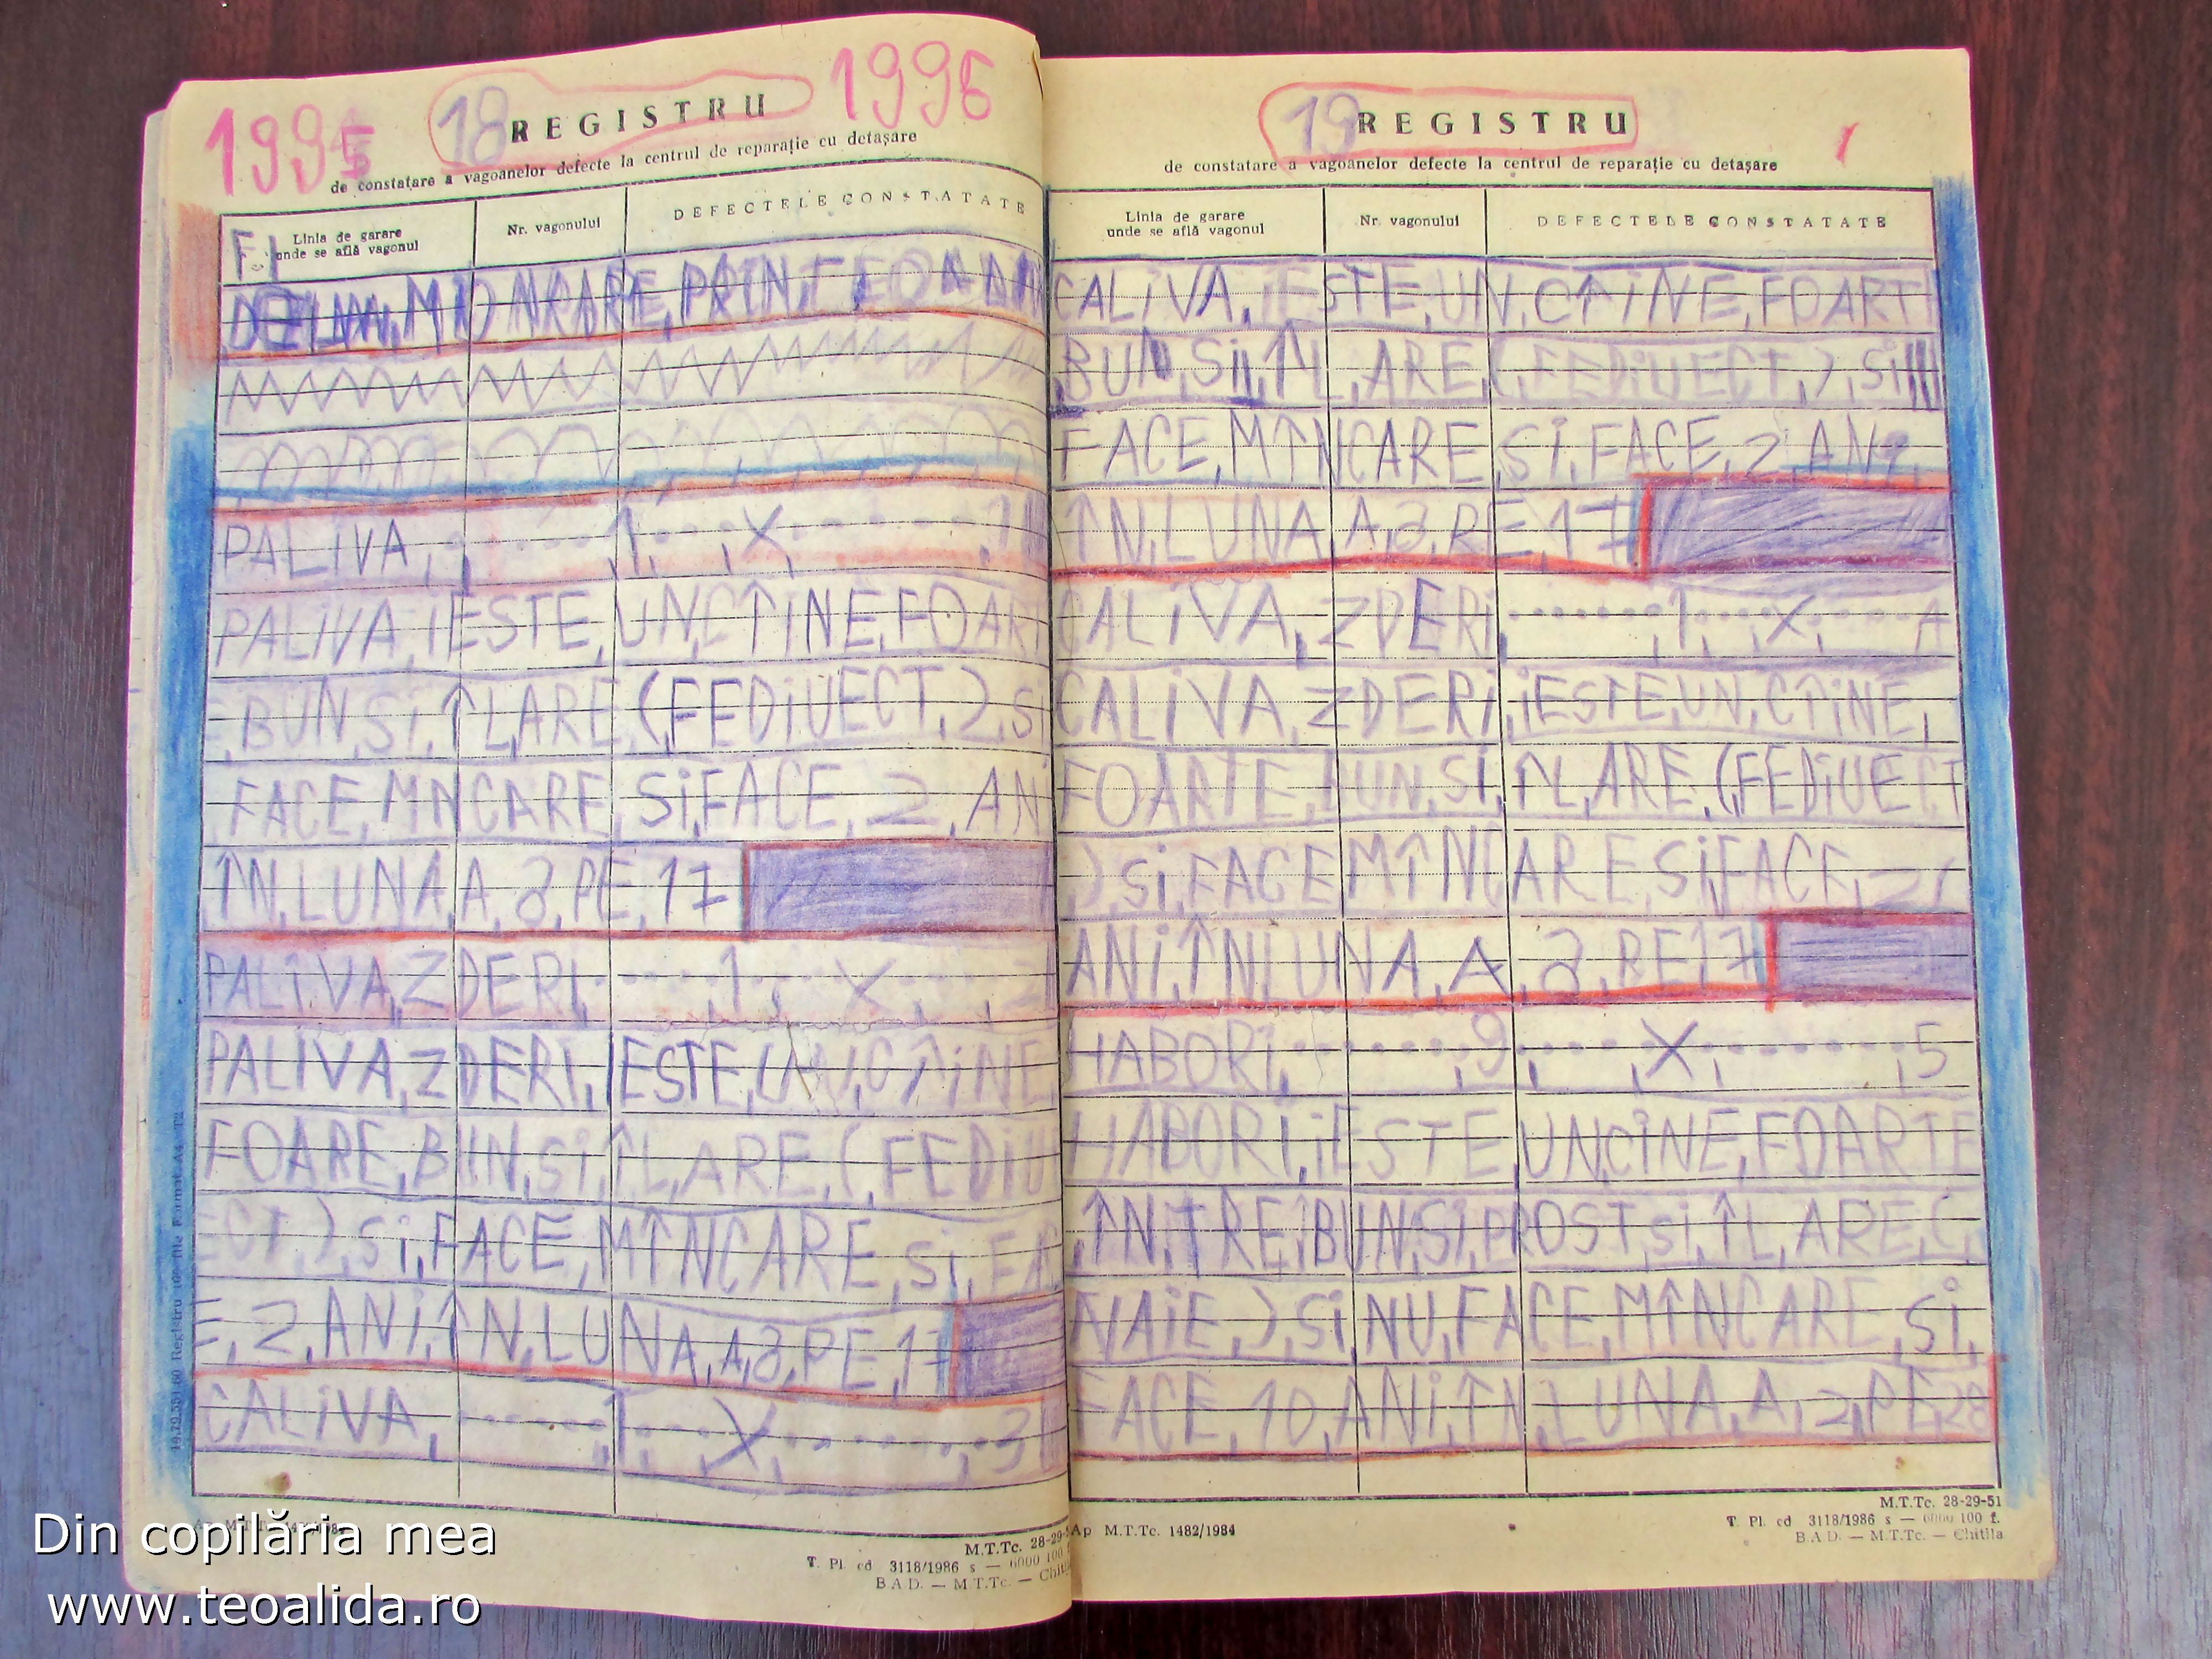 1995 18 REGISTRU 1996
de constatare a vagoanelor defecte la centrul de reparație cu detașare
Linia de garare
unde se află vagonul
Nr. vagonului
DEFECTELE CONSTATATE
PALIVA, 1, X,
PALIVA, IESTE, UN, CÎINE, FOART
E, BUN, SI, ÎL, ARE, (FEDIUECT,), SI
FACE, MNCARE, SI, FACE, 2, ANI
ÎN, LUNA, A, 8, PE, 17
PALIVA, ZDERI, 1, X, 2
PALIVA, ZDERI, IESTE, UN, CÎINE
FOARE, BUN, SI, ÎL, ARE, (, FEDIU
ECT), SI, FACE, MÎNCARE, SI, FAC
E, 2, ANI, ÎN, LUNA, A, 8, PE, 17
CALIVA, 1, X, 3
Ap M.T.Tc. 1482/1984
M.T.Tc. 28-29-51
T. Pl. cd 3118/1986 s — 6000 100 f.
B.A.D. — M.T.Tc. — Chitila
19 REGISTRU
de constatare a vagoanelor defecte la centrul de reparație cu detașare
Linia de garare
unde se află vagonul
Nr. vagonului
DEFECTELE CONSTATATE
CALIVA, IESTE, UN, CÎINE, FOARTE
BUN, SI, ÎL, ARE, (, FEDIUECT,), SI
FACE, MÎNCARE, SI, FACE, 2, ANI,
ÎN, LUNA, A, 8, PE, 17
CALIVA, ZDERI, 1, X, 4
CALIVA, ZDERI, IESTE, UN, CÎINE,
FOARTE, BUN, SI, ÎL, ARE, (FEDIUECT
), SI, FACE MÎNCARE, SI, FACE, 2,
ANI, ÎN LUNA, A, 8, PE 17
HABORI, 9, X, 5
HABORI, IESTE, UN CINE, FOARTE
, ÎNTRE, BUN, SI, PROST, SI, ÎL, ARE, (,
NAIE,), SI, NU, FACE, MÎNCARE, SI,
FACE, 10, ANI, ÎN, LUNA, A, 2, PE, 28
Ap M.T.Tc. 1482/1984
M.T.Tc. 28-29-51
T. Pl. cd 3118/1986 s — 6000 100 f.
B.A.D. — M.T.Tc. — Chitila
Din copilăria mea
www.teoalida.ro